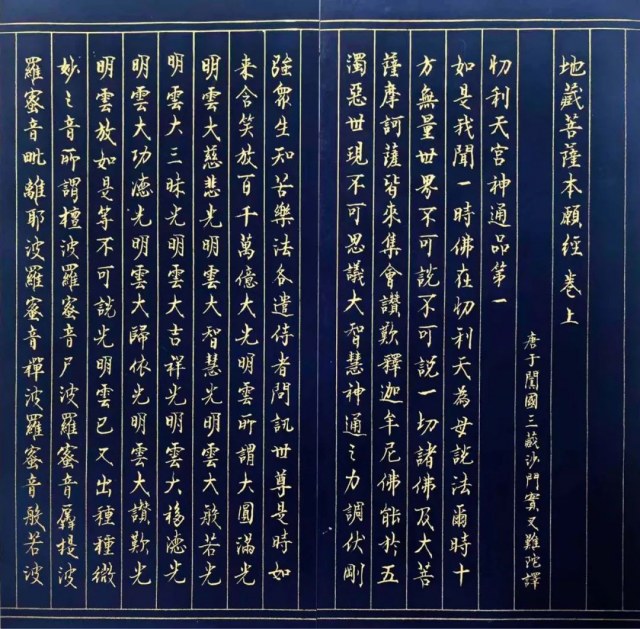 地藏菩薩本願經卷上
唐于闐國三藏沙門實叉難陀譯
忉利天宮神通品第一
如是我聞一時佛在忉利天為母說法爾時十
方無量世界不可說不可說一切諸佛及大菩
薩摩訶薩皆來集會讚歎釋迦牟尼佛能於五
濁惡世現不可思議大智慧神通之力調伏剛
強眾生知苦樂法各遣侍者問訊世尊是時如
來含笑放百千萬億大光明雲所謂大圓滿光
明雲大慈悲光明雲大智慧光明雲大般若光
明雲大三昧光明雲大吉祥光明雲大福德光
明雲大功德光明雲大歸依光明雲大讚歎光
明雲放如是等不可說光明雲已又出種種微
妙之音所謂檀波羅蜜音尸波羅蜜音羼提波
羅蜜音毗離耶波羅蜜音禪波羅蜜音般若波